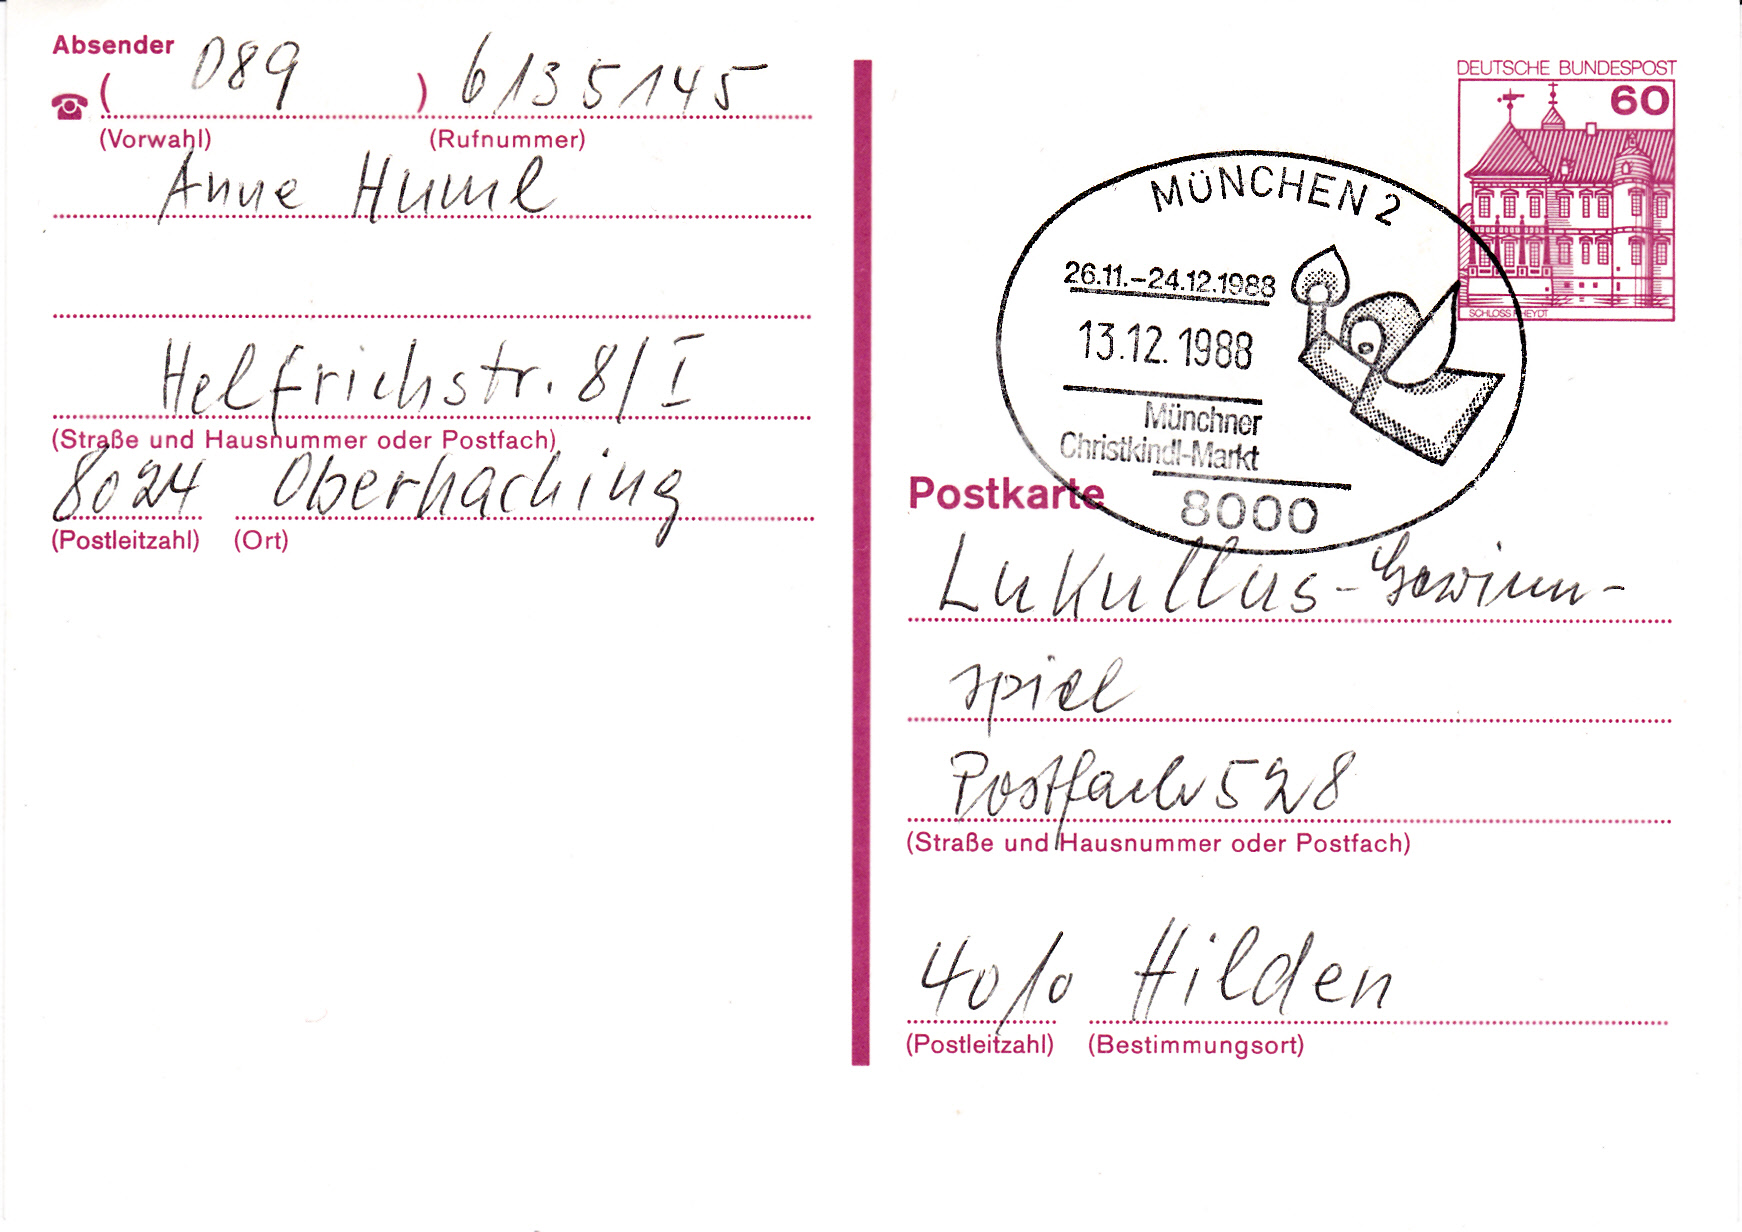 Absender
( 089 ) 6135145
(Vorwahl) (Rufnummer)
Anne Huml
Helfrichstr. 8/I
(Straße und Hausnummer oder Postfach)
8024 Oberhaching
(Postleitzahl) (Ort)
DEUTSCHE BUNDESPOST
60
SCHLOSS RHEYDT
MÜNCHEN 2
26.11.–24.12.1988
13.12.1988
Münchner
Christkindl-Markt
8000
Postkarte
Lukullus-Gewinn-
spiel
Postfach 528
(Straße und Hausnummer oder Postfach)
4010 Hilden
(Postleitzahl) (Bestimmungsort)